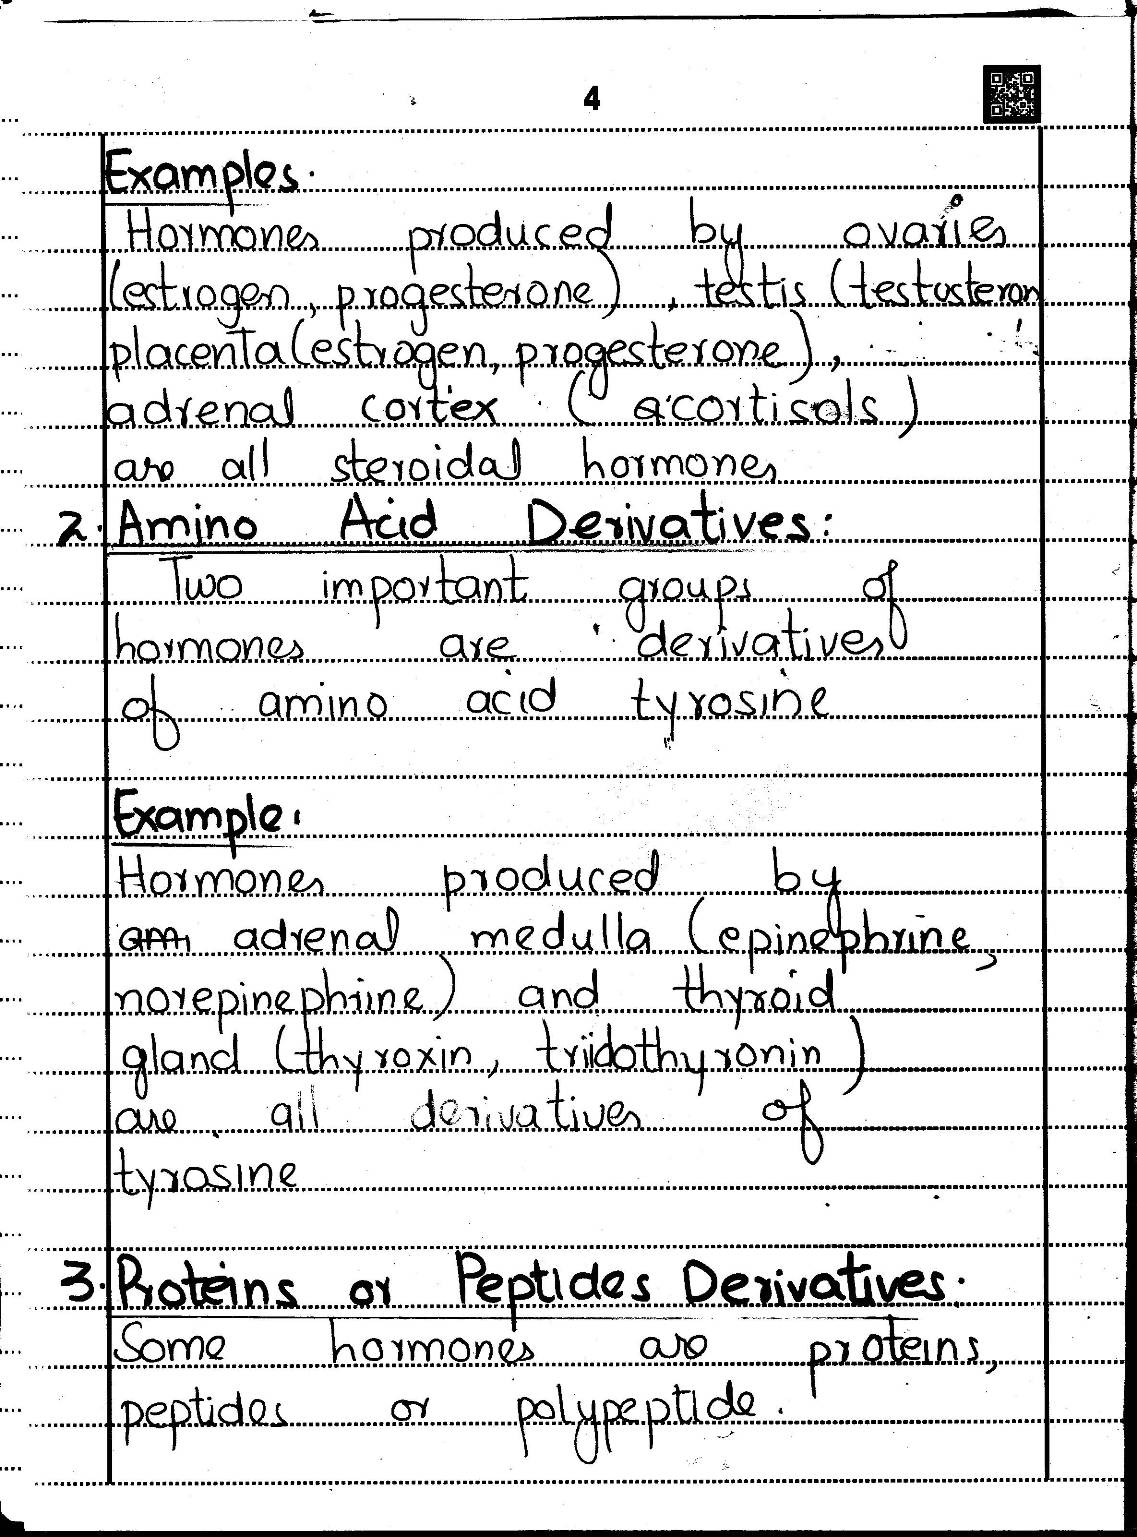 4
Examples.
Hormones produced by ovaries
(estrogen, progesterone), testis (testosteron
placenta (estrogen, progesterone),
adrenal cortex (acortisols)
are all steroidal hormones
2. Amino Acid Derivatives:
Two important groups of
hormones are derivatives
of amino acid tyrosine
Example:
Hormones produced by
am adrenal medulla (epinephrine,
norepinephrine) and thyroid
gland (thyroxin, triidothyronin)
are all derivatives of
tyrosine
3. Proteins or Peptides Derivatives.
Some hormones are proteins,
peptides or polypeptide.